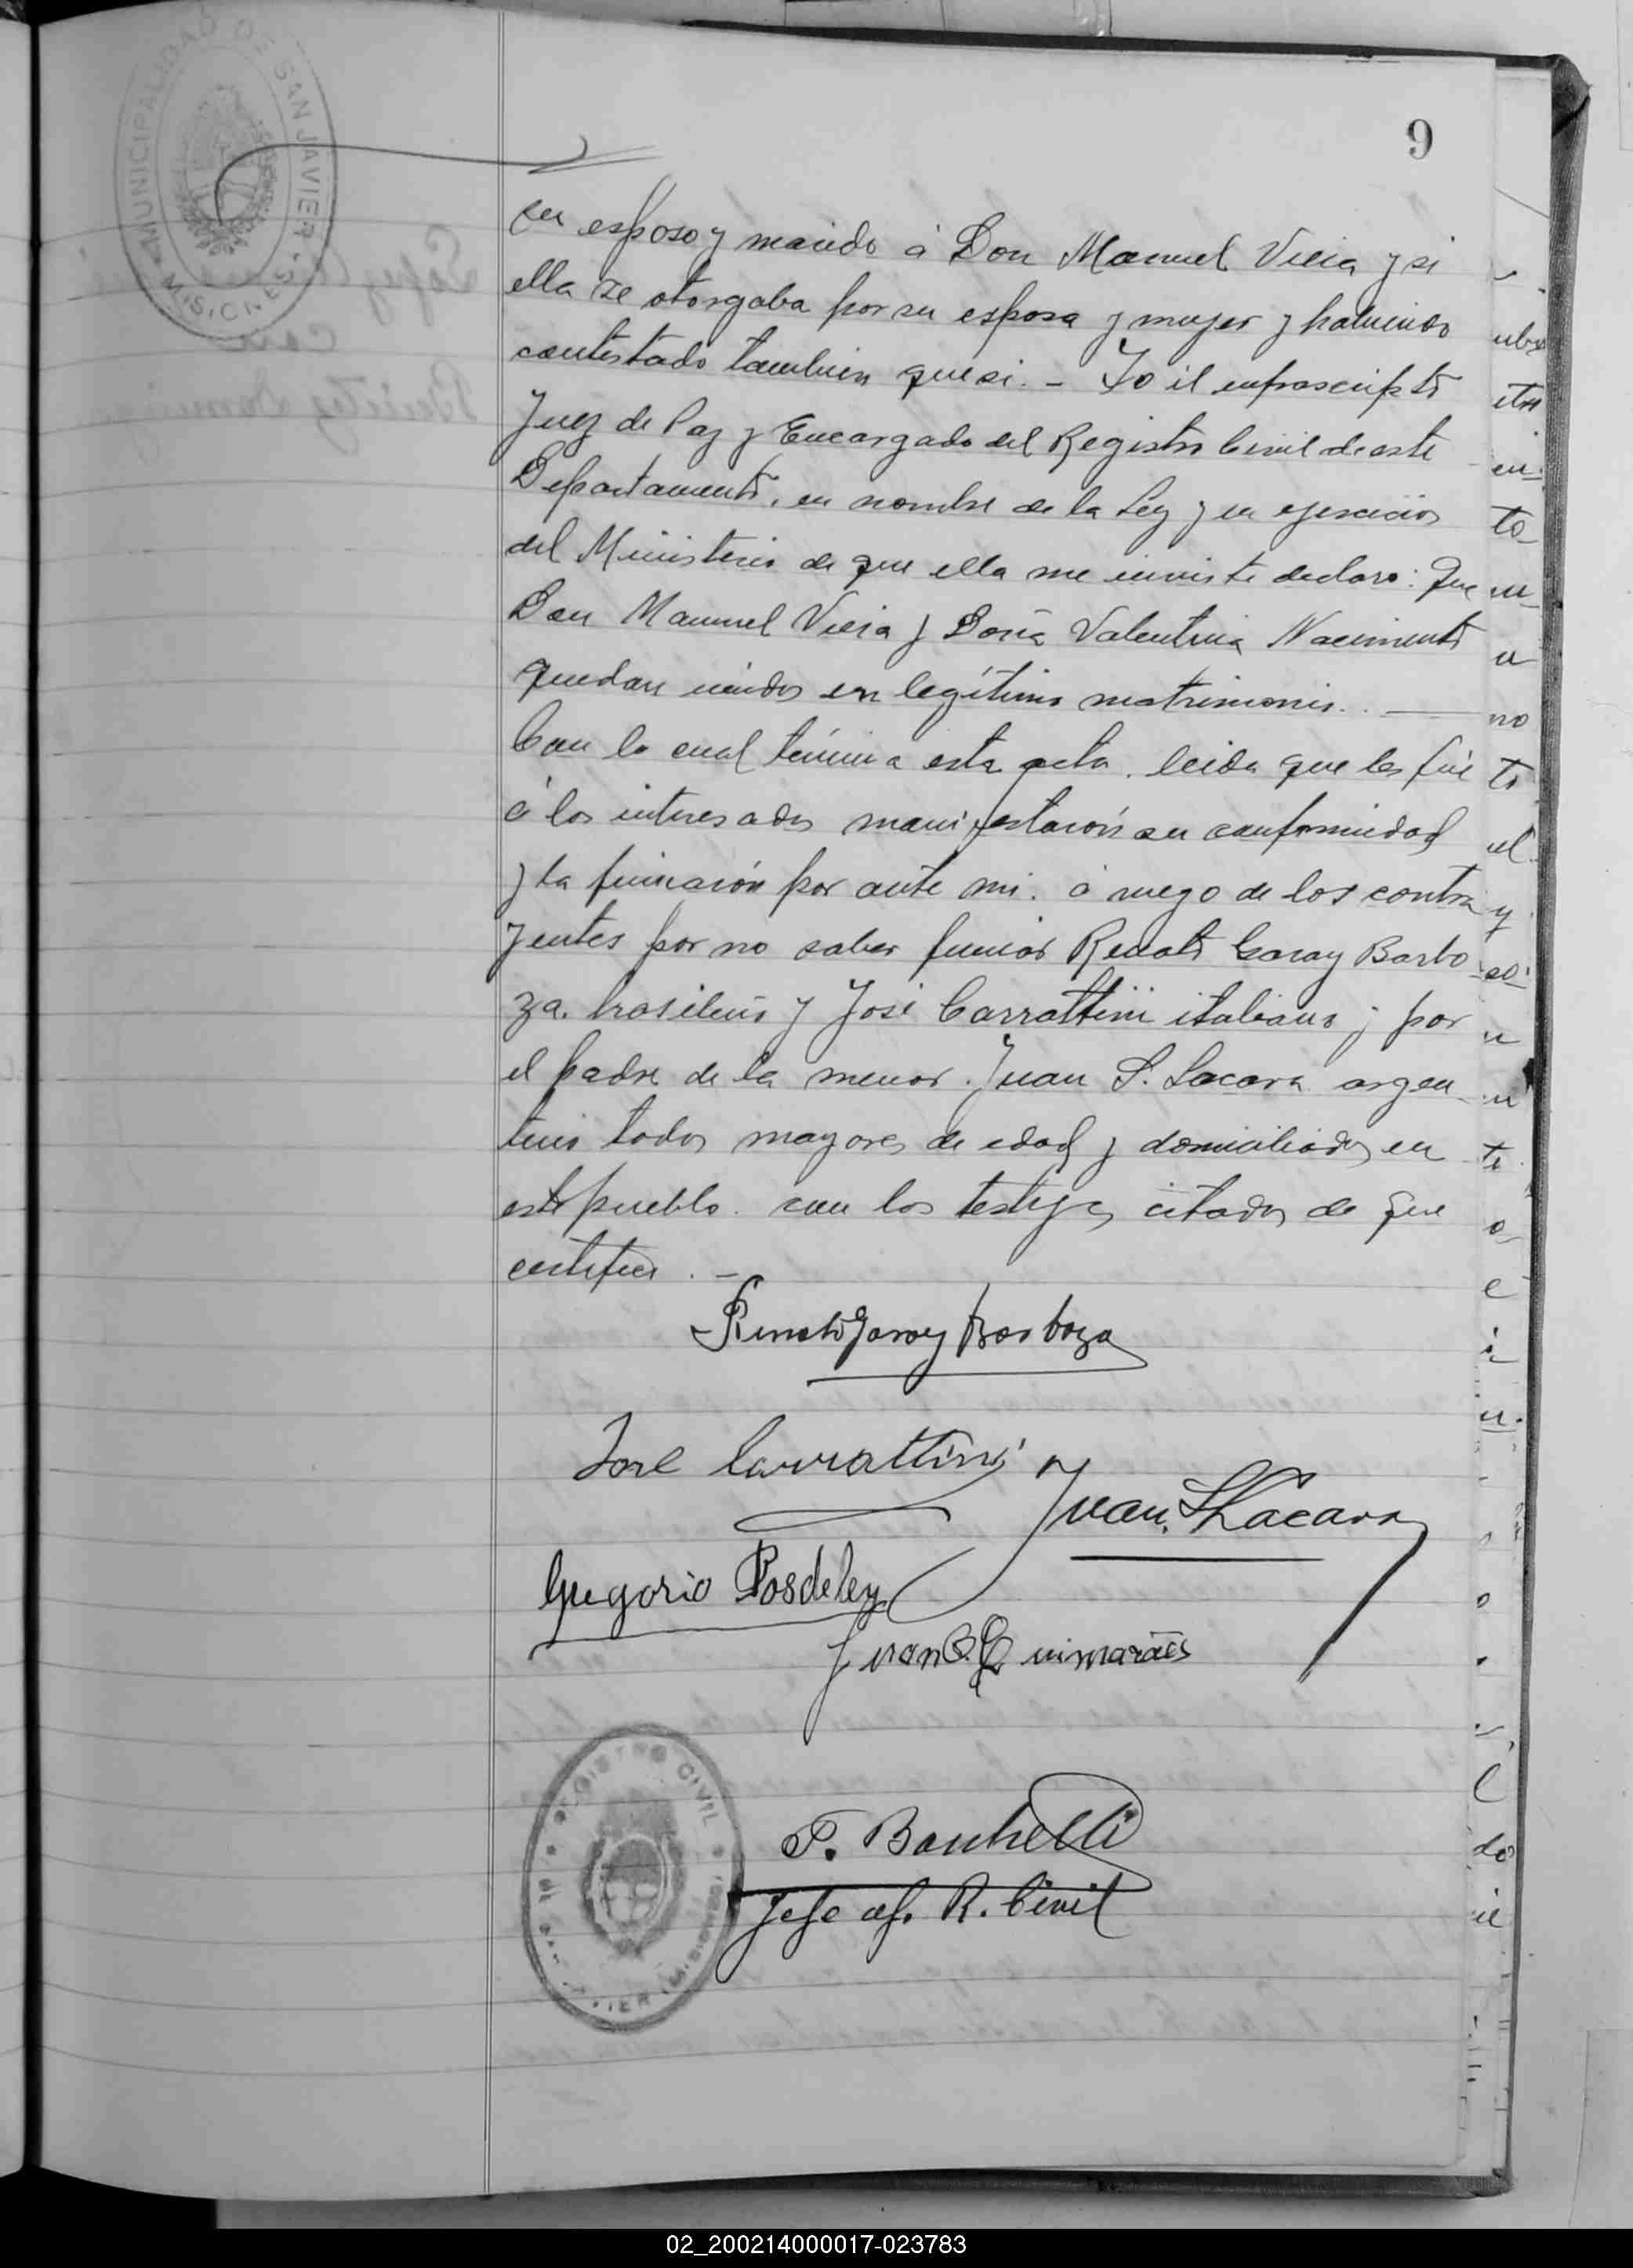 MUNICIPALIDAD DE SAN JAVIER
MISIONES
9
su esposo y marido á Don Manuel Vieira y si
ella se otorgaba por su esposa y mujer y habiendo
contestado tambien que si. – Yo el infrascripto
Juez de Paz y Encargado del Registro Civil de este
Departamento, en nombre de la Ley y en ejercicio
del Ministerio de que ella me inviste declaro: Que
Don Manuel Vieira y Doña Valentina Nacimento
quedan unidos en legítimo matrimonio. . —
Con lo cual términa esta acta. leida que les fué
á los interesados manifestarón su conformidad
y la firmarón por ante mi. á ruego de los contra
yentes por no saber firmar Renato Garay Barbo
za. brasileño y José Carrattini italiano y por
el padre de la menor. Juan S. Lacava argen
tino todos mayores de edad y domiciliados en
este pueblo. con los testigos citados de que
certifico . –
Renato Garay Barboza
José Carrattini
Juan S Lacava
Gregorio Posdeley
Juan G. Guimarães
REGISTRO CIVIL
P. Bonhelli
Jefe of. R. Civil
02_200214000017-023783